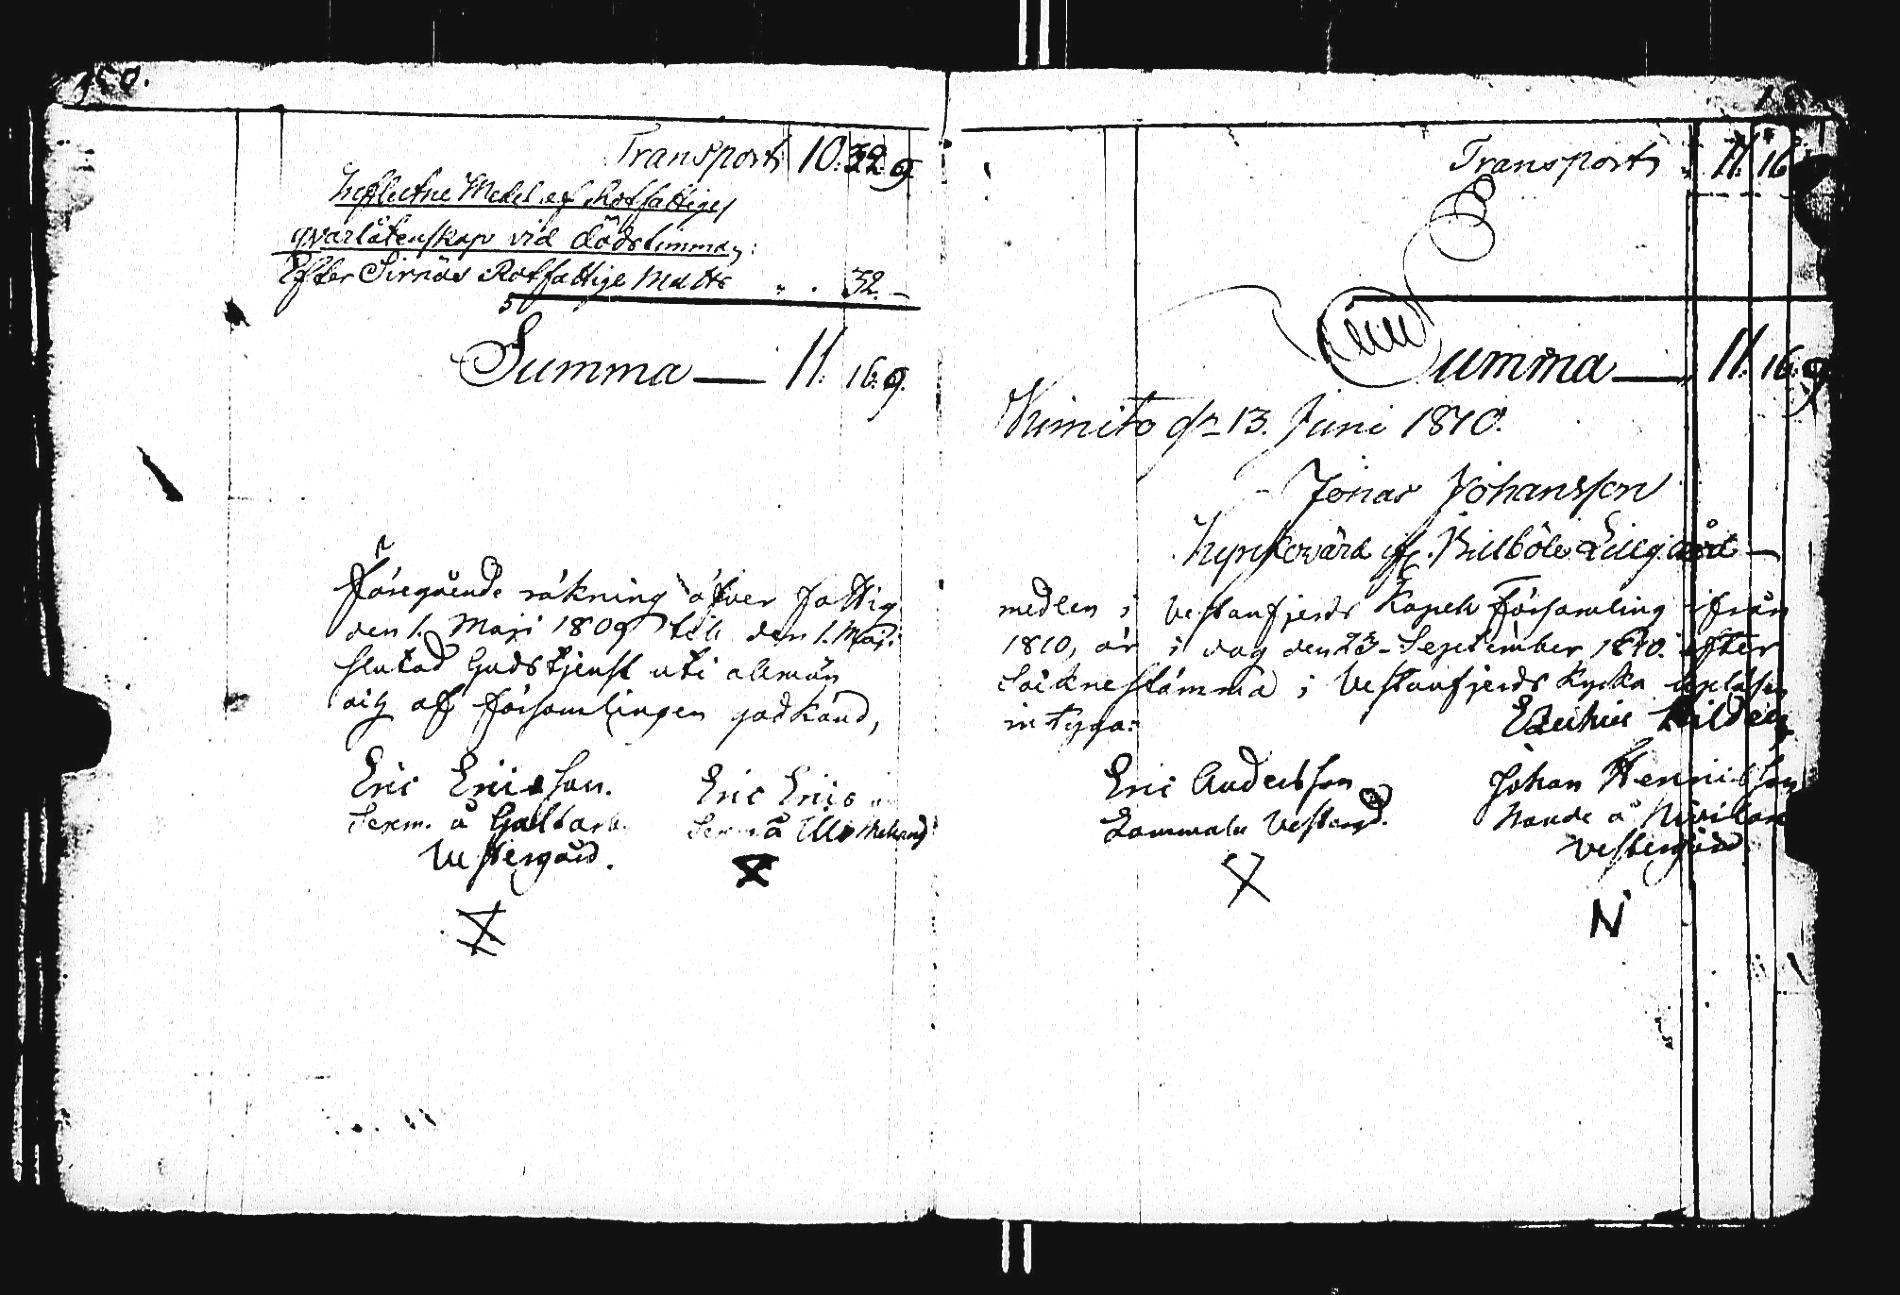 150.
Transport 10. 32. 9.
Influtne Medel af Rotfattiges
qvarlåtenskap vid dödstimman:
Efter Sirnäs Rotfattige Matts " . 32. –
Summa — 11. 16. 9.
Föregående räkning öfver fattig
den 1. Maji 1809 till den 1. Maji
slutad Gudstjenst uti allmän
och af församlingen godkänd,
Eric Ericsson.
Sexm. å Galtarb.
Vestergård.
Eric Erics
Sexm. å
Transport " 11. 16
Summa — " 11. 16. 9
Kimito d. 13. Juni 1810.
Jonas Johansson
Kyrkovärd Lillgård —
medlen i Vestanfjerds Kapells Församling ifrån
1810, är i dag den 23. September 1810. efter
Sockne stämma i Vestanfjerds Kyrka upläsen
intyga:
Eric Andersson
Lammala Vestergd.
Johan Hennicsson
Nivilax
Vestergård
N